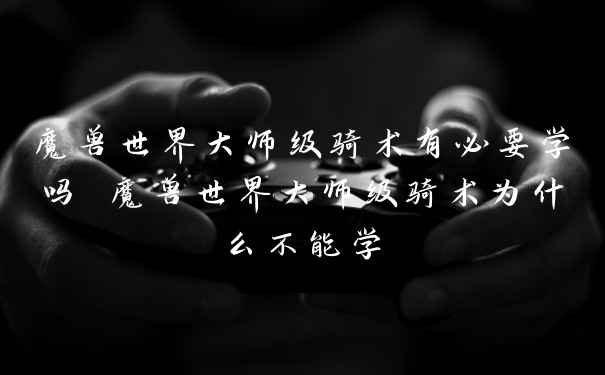 魔兽世界大师级骑术有必要学
吗 魔兽世界大师级骑术为什
么不能学